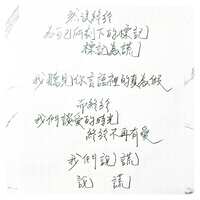 我後終於
為自己所刻下的標記
標記為謊
我聽見你言語裡的真為假
而終於
我們談愛的時光
終於不再有愛
我們說謊
說 謊